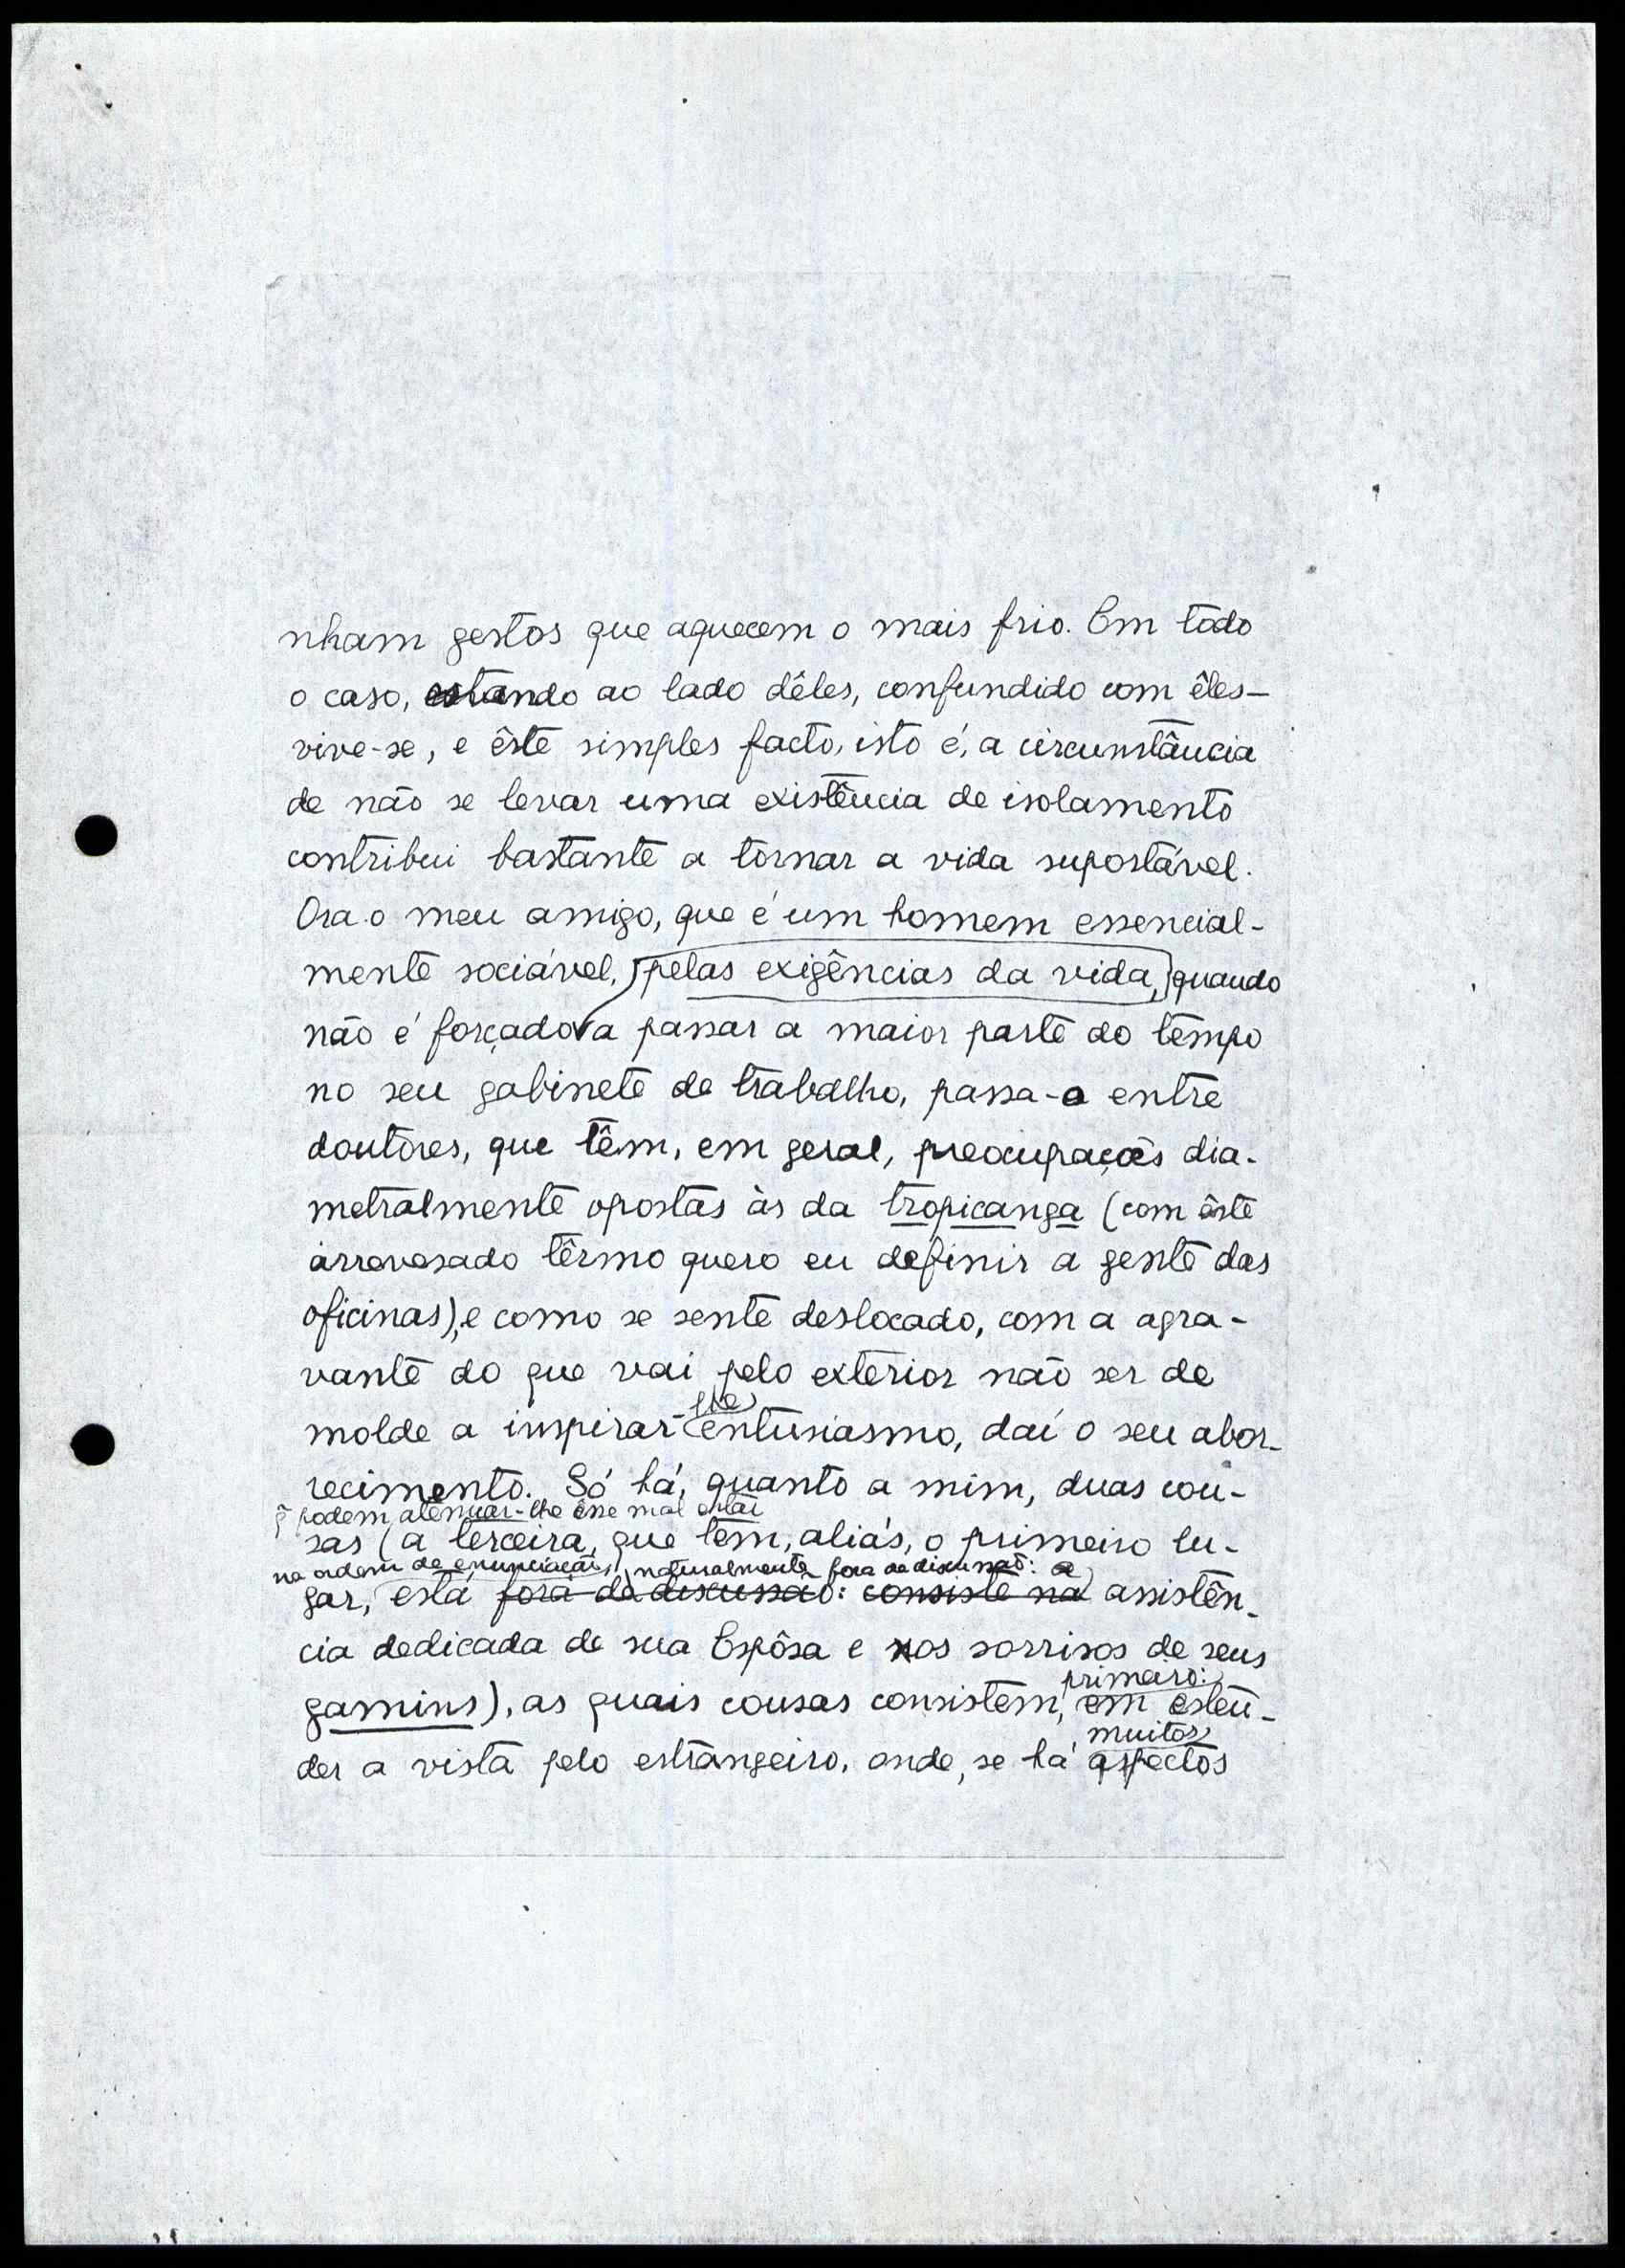 nham gestos que aquecem o mais frio. Em todo
o caso, estando ao lado dêles, confundido com êles—
vive-se, e êste simples facto, isto é, a circunstância
de não se levar uma existência de isolamento
contribui bastante a tornar a vida suportável.
Ora o meu amigo, que é um homem essencial-
mente sociável, pelas exigências da vida, quando
não é forçado a passar a maior parte do tempo
no seu gabinete de trabalho, passa-o entre
doutores, que têm, em geral, preocupações dia-
metralmente opostas às da tropicanga (com êste
arrevesado têrmo quero eu definir a gente das
oficinas), e como se sente deslocado, com a agra-
vante do que vai pelo exterior não ser de
lhe
molde a inspirar- entusiasmo, daí o seu abor-
recimento. Só há, quanto a mim, duas cou-
q̃ podem atenuar-lhe êsse mal estar
sas (a terceira, que tem, aliás, o primeiro lu-
na ordem de enunciação, naturalmente fora de discussão: a
gar, está fora de discussão: consiste na assistên-
cia dedicada de sua Espôsa e nos sorrisos de seus
primeiro:
gamins), as quais cousas consistem, em esten-
muitos
der a vista pelo estrangeiro, onde, se há aspectos